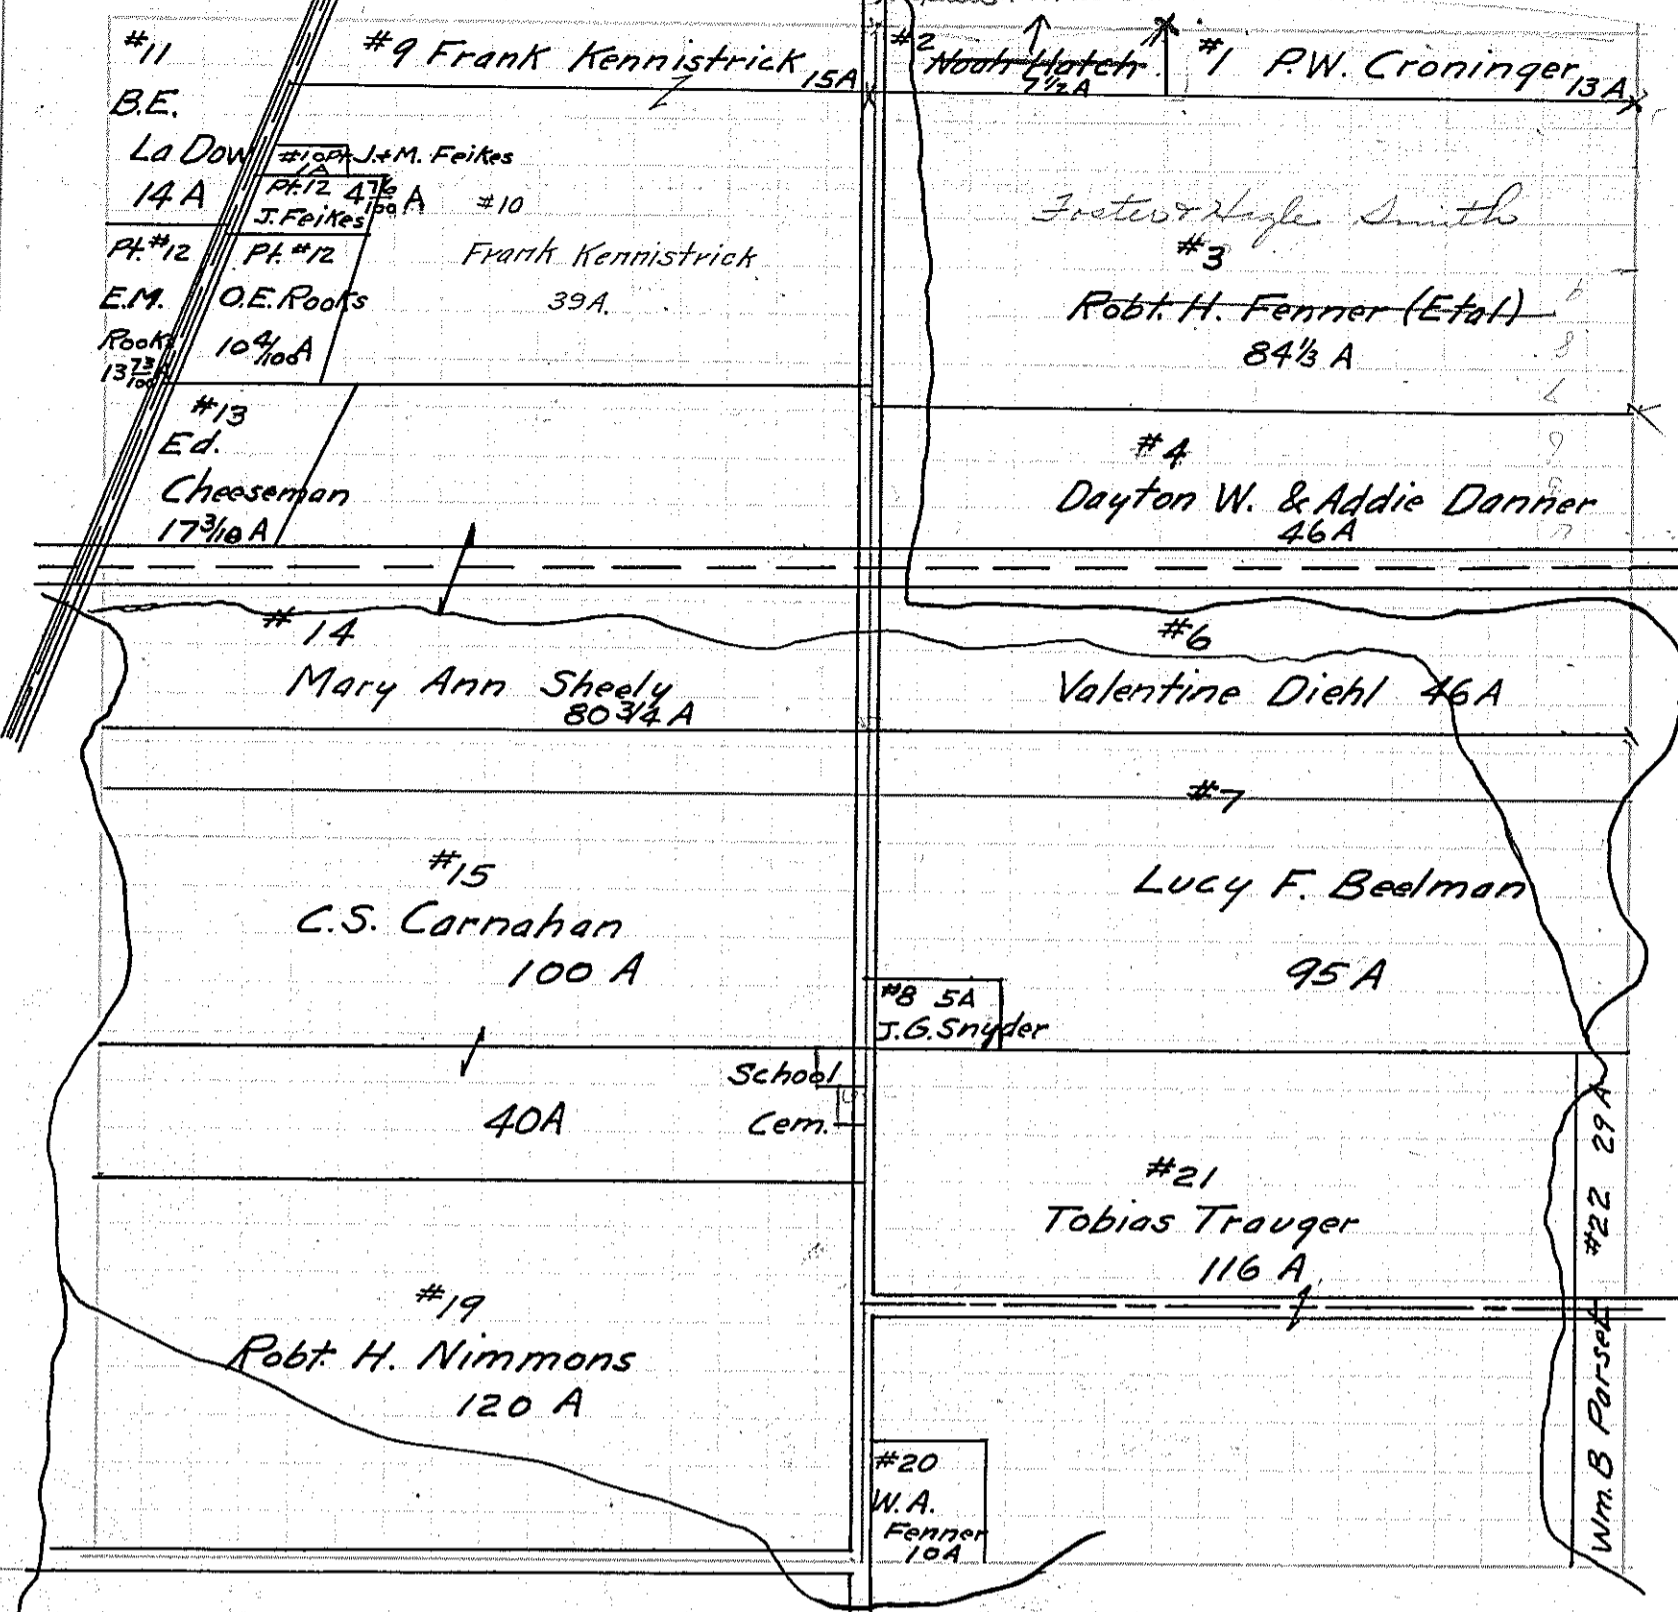 #11
B.E.
La Dow
14 A
#9 Frank Kennistrick 15A
#2
Noah Hatch
7 1/2 A
#1 P.W. Croninger 13 A
#10 Pt. J.+M. Feikes
1A
Pt. 12 4 76/100 A
J. Feikes
#10
Frank Kennistrick
39A.
Pt. #12
E.M.
Rooks
13 73/100 A
Pt. #12
O.E. Rooks
10 4/100 A
Smith
#3
Robt. H. Fenner (Etal)
84 1/3 A
#13
Ed.
Cheeseman
17 3/10 A
#4
Dayton W. & Addie Danner
46A
#14
Mary Ann Sheely
80 3/4 A
#6
Valentine Diehl 46A
#15
C.S. Carnahan
100 A
#7
Lucy F. Beelman
95 A
#8 5A
J.G. Snyder
School
40A
Cem.
#21
Tobias Trauger
116 A
Wm. B Parsel #22 29 A
#19
Robt. H. Nimmons
120 A
#20
W.A.
Fenner
10A